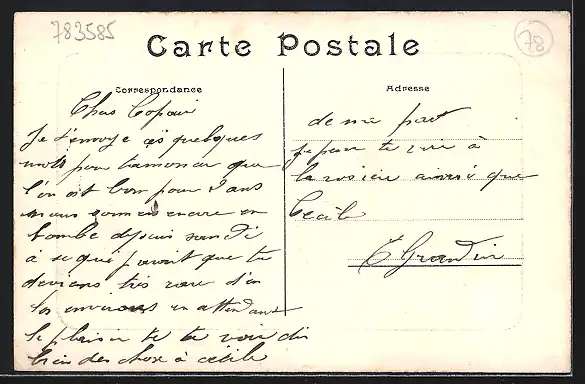 783585
78
Carte Postale
Correspondance
Adresse
Cher Copain
Je t'envoye ces quelques
mots pour t'anoncer que
l'on est bon pour 2 ans
nous sommes encore en
bombe depuis samedi
à se qui parait que tu
devrans très rare d'en
les environs en attendant
le plaisir de te voir dis
bien des chose à cécile
de ma part
je pense te voir à
la rosière ainsi que
Cécile
E Grandin